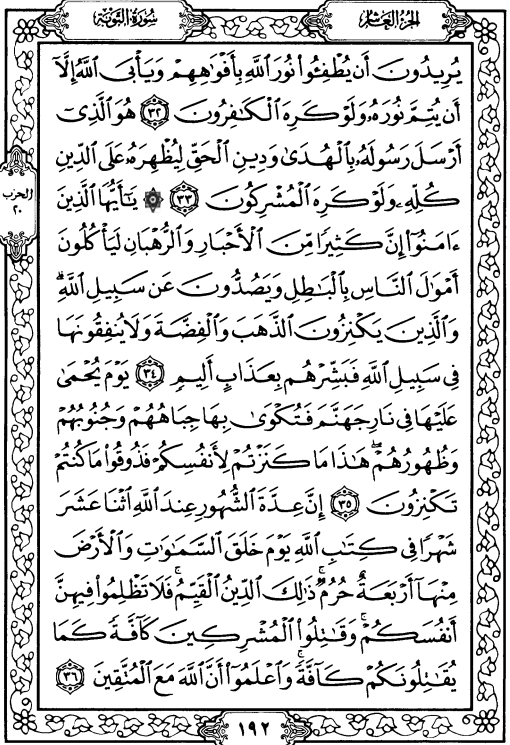 سُورَةُ التَّوْبَةِ
الجُزْءُ العَاشِرُ
يُرِيدُونَ أَن يُطْفِـُٔوا۟ نُورَ ٱللَّهِ بِأَفْوَٰهِهِمْ وَيَأْبَى ٱللَّهُ إِلَّآ
أَن يُتِمَّ نُورَهُۥ وَلَوْ كَرِهَ ٱلْكَٰفِرُونَ ٣٢ هُوَ ٱلَّذِىٓ
أَرْسَلَ رَسُولَهُۥ بِٱلْهُدَىٰ وَدِينِ ٱلْحَقِّ لِيُظْهِرَهُۥ عَلَى ٱلدِّينِ
كُلِّهِۦ وَلَوْ كَرِهَ ٱلْمُشْرِكُونَ ٣٣ ۞ يَٰٓأَيُّهَا ٱلَّذِينَ
ءَامَنُوٓا۟ إِنَّ كَثِيرًا مِّنَ ٱلْأَحْبَارِ وَٱلرُّهْبَانِ لَيَأْكُلُونَ
أَمْوَٰلَ ٱلنَّاسِ بِٱلْبَٰطِلِ وَيَصُدُّونَ عَن سَبِيلِ ٱللَّهِ ۗ
وَٱلَّذِينَ يَكْنِزُونَ ٱلذَّهَبَ وَٱلْفِضَّةَ وَلَا يُنفِقُونَهَا
فِى سَبِيلِ ٱللَّهِ فَبَشِّرْهُم بِعَذَابٍ أَلِيمٍ ٣٤ يَوْمَ يُحْمَىٰ
عَلَيْهَا فِى نَارِ جَهَنَّمَ فَتُكْوَىٰ بِهَا جِبَاهُهُمْ وَجُنُوبُهُمْ
وَظُهُورُهُمْ ۖ هَٰذَا مَا كَنَزْتُمْ لِأَنفُسِكُمْ فَذُوقُوا۟ مَا كُنتُمْ
تَكْنِزُونَ ٣٥ إِنَّ عِدَّةَ ٱلشُّهُورِ عِندَ ٱللَّهِ ٱثْنَا عَشَرَ
شَهْرًا فِى كِتَٰبِ ٱللَّهِ يَوْمَ خَلَقَ ٱلسَّمَٰوَٰتِ وَٱلْأَرْضَ
مِنْهَآ أَرْبَعَةٌ حُرُمٌ ۚ ذَٰلِكَ ٱلدِّينُ ٱلْقَيِّمُ ۚ فَلَا تَظْلِمُوا۟ فِيهِنَّ
أَنفُسَكُمْ ۚ وَقَٰتِلُوا۟ ٱلْمُشْرِكِينَ كَآفَّةً كَمَا
يُقَٰتِلُونَكُمْ كَآفَّةً ۚ وَٱعْلَمُوٓا۟ أَنَّ ٱللَّهَ مَعَ ٱلْمُتَّقِينَ ٣٦
الحزب
٢٠
١٩٢